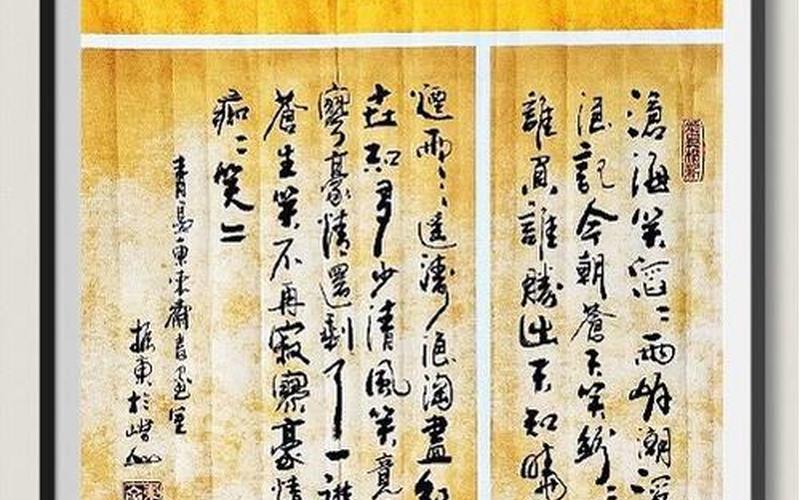 滄海笑滔〻兩岸潮浮
浪記今朝蒼天笑紛〻
誰負誰勝出天知曉
煙雨〻遙濤浪淘盡紅
世知多少清風笑竟
寥豪情還剩了一襟
蒼生笑不再寂寥豪情
痴〻笑〻
青島東齋書畫
振東於嶗山